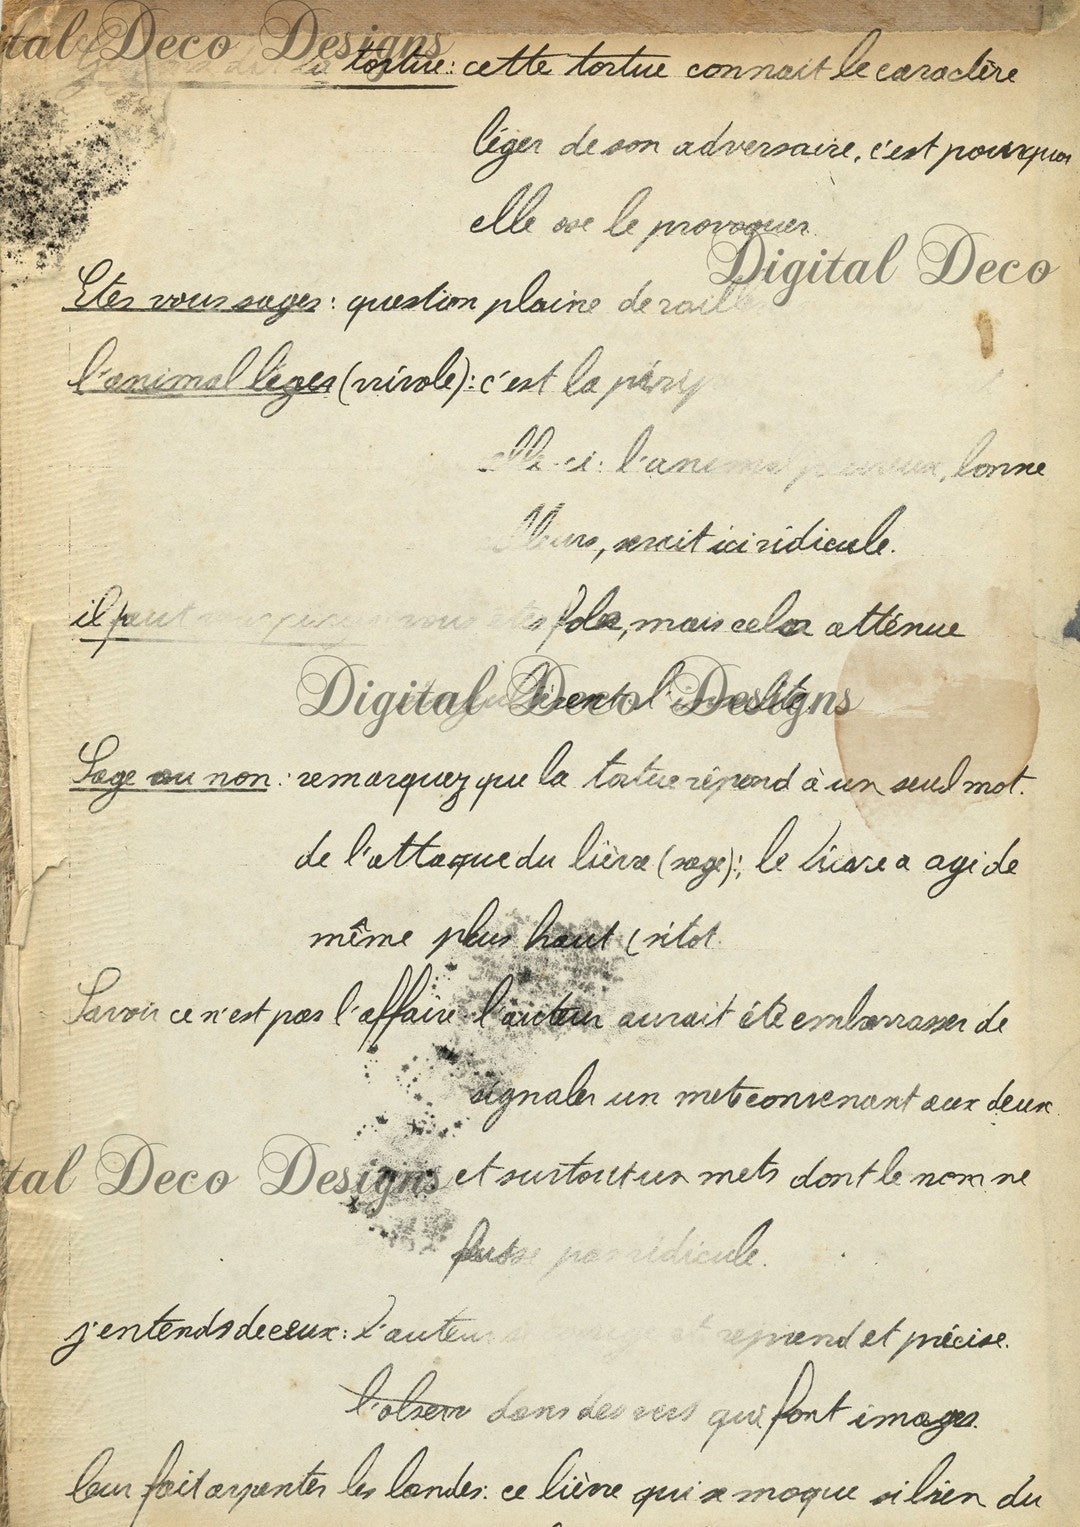 Digital Deco Designs
tortue : cette tortue connait le caractère
léger de son adversaire, c'est pourquoi
elle ose le provoquer
Digital Deco
Etes vous sages : question plaine de raille
l'animal léger (vrivole) : c'est la périp
elle-ci : l'animal peureux, bonne
illeurs, serait ici ridicule.
il faut vous êtes folle, mais cela atténue
Digital Deco Designs
Sage ou non : remarquez que la tortue répond à un seul mot
de l'attaque du lièvre (sage) ; le lièvre a agi de
même plus haut (sitot
Savoir ce n'est pas l'affaire l'auteur aurait été embarrasser de
signaler un mets convenant aux deux
tal Deco Designs
et surtout un mets dont le nom ne
fusse pas ridicule.
j'entends de ceux : l'auteur et reprend et précise.
dans des vers qui font images
leur fait arpenter les landes : ce lièvre qui se moque si bien du